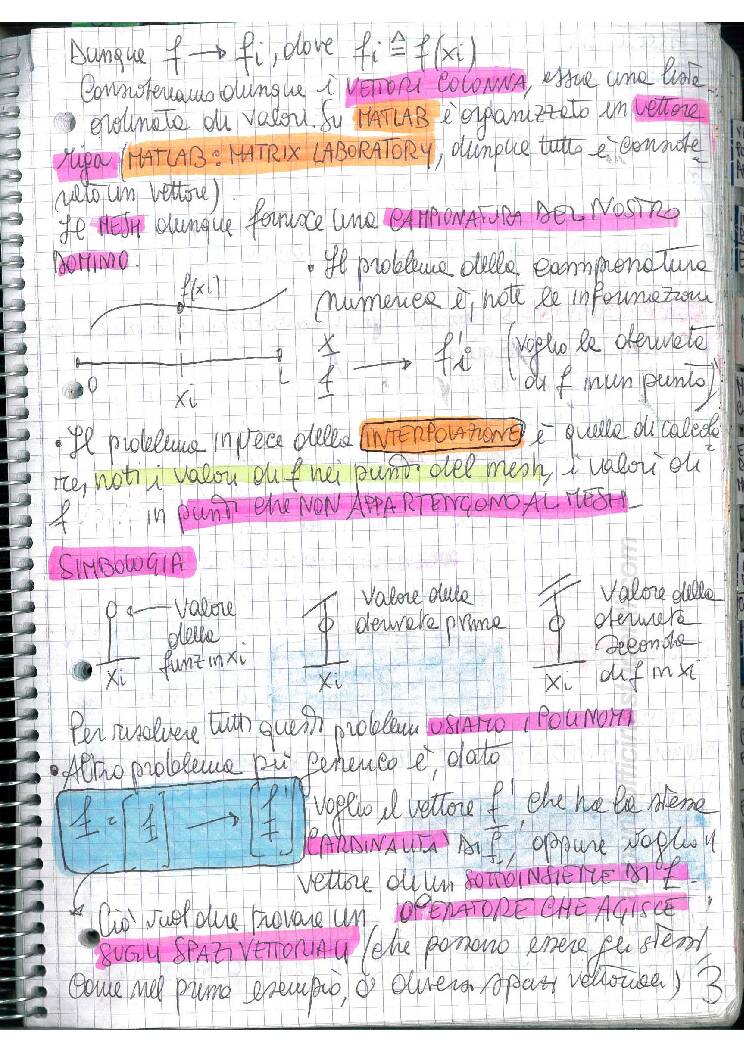 Dunque f → fi, dove fi ≙ f(xi)
Consideriamo dunque i VETTORI COLONNA, essia una lista
ordinata di valori. Su MATLAB è organizzato in vettore
riga (MATLAB: MATRIX LABORATORY, dunque tutto è conside-
rato un vettore)
Il MESH dunque fornisce una CAMPIONATURA DEL NOSTRO
DOMINIO.
f(xi)
0 xi L
• Il problema della campionatura
numerica è, note le informazioni
x
f → f'i (voglio la derivata
di f in un punto)
• Il problema invece della INTERPOLAZIONE è quella di calcola-
re, noti i valori di f nei punti del mesh, i valori di
f in punti che NON APPARTENGONO AL MESH
SIMBOLOGIA
xi Valore della funz in xi
xi Valore della derivata prima
xi Valore della derivata seconda di f in xi
Per risolvere tutti questi problemi USIAMO I POLINOMI
• Altro problema più generico è, dato
f = [f] → [f'] Voglio il vettore f', che ha la stessa
CARDINALITÀ DI f, oppure voglio il
vettore di un SOTTOINSIEME DI f.
Ciò vuol dire trovare un OPERATORE CHE AGISCE
SUGLI SPAZI VETTORIALI (che possono essere gli stessi,
come nel primo esempio, o diversi spazi vettoriali) 3